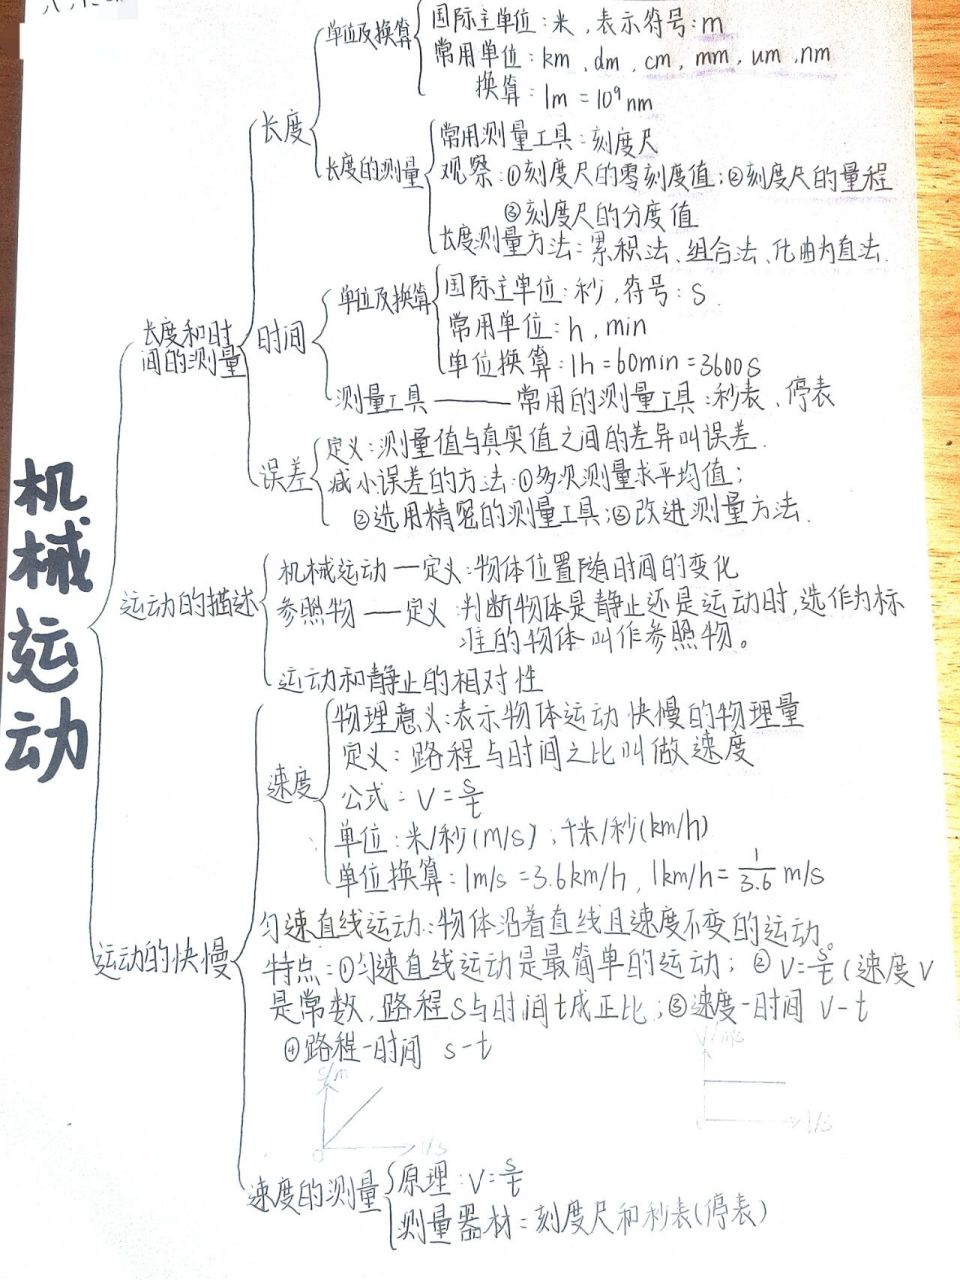 机械运动
长度和时
间的测量
长度
单位及换算
国际主单位：米，表示符号：m
常用单位：km、dm、cm、mm、um、nm
换算：1m=10⁹nm
长度的测量
常用测量工具：刻度尺
观察：①刻度尺的零刻度值；②刻度尺的量程
③刻度尺的分度值
长度测量方法：累积法、组合法、化曲为直法.
时间
单位及换算
国际主单位：秒，符号：s.
常用单位：h，min
单位换算：1h=60min=3600s
测量工具——常用的测量工具：秒表、停表
误差
定义：测量值与真实值之间的差异叫误差.
减小误差的方法：①多次测量求平均值；
②选用精密的测量工具；③改进测量方法.
运动的描述
机械运动—定义：物体位置随时间的变化
参照物—定义：判断物体是静止还是运动时，选作为标
准的物体叫作参照物。
运动和静止的相对性
运动的快慢
速度
物理意义：表示物体运动快慢的物理量
定义：路程与时间之比叫做速度
公式：V=s/t
单位：米/秒(m/s)，千米/秒(km/h)
单位换算：1m/s=3.6km/h，1km/h=1/3.6 m/s
匀速直线运动：物体沿着直线且速度不变的运动。
特点：①匀速直线运动是最简单的运动；②V=s/t(速度V
是常数，路程s与时间t成正比；③速度-时间 v-t
④路程-时间 s-t
s/m
t/s
0
V/m/s
t/s
速度的测量
原理：V=s/t
测量器材：刻度尺和秒表(停表)